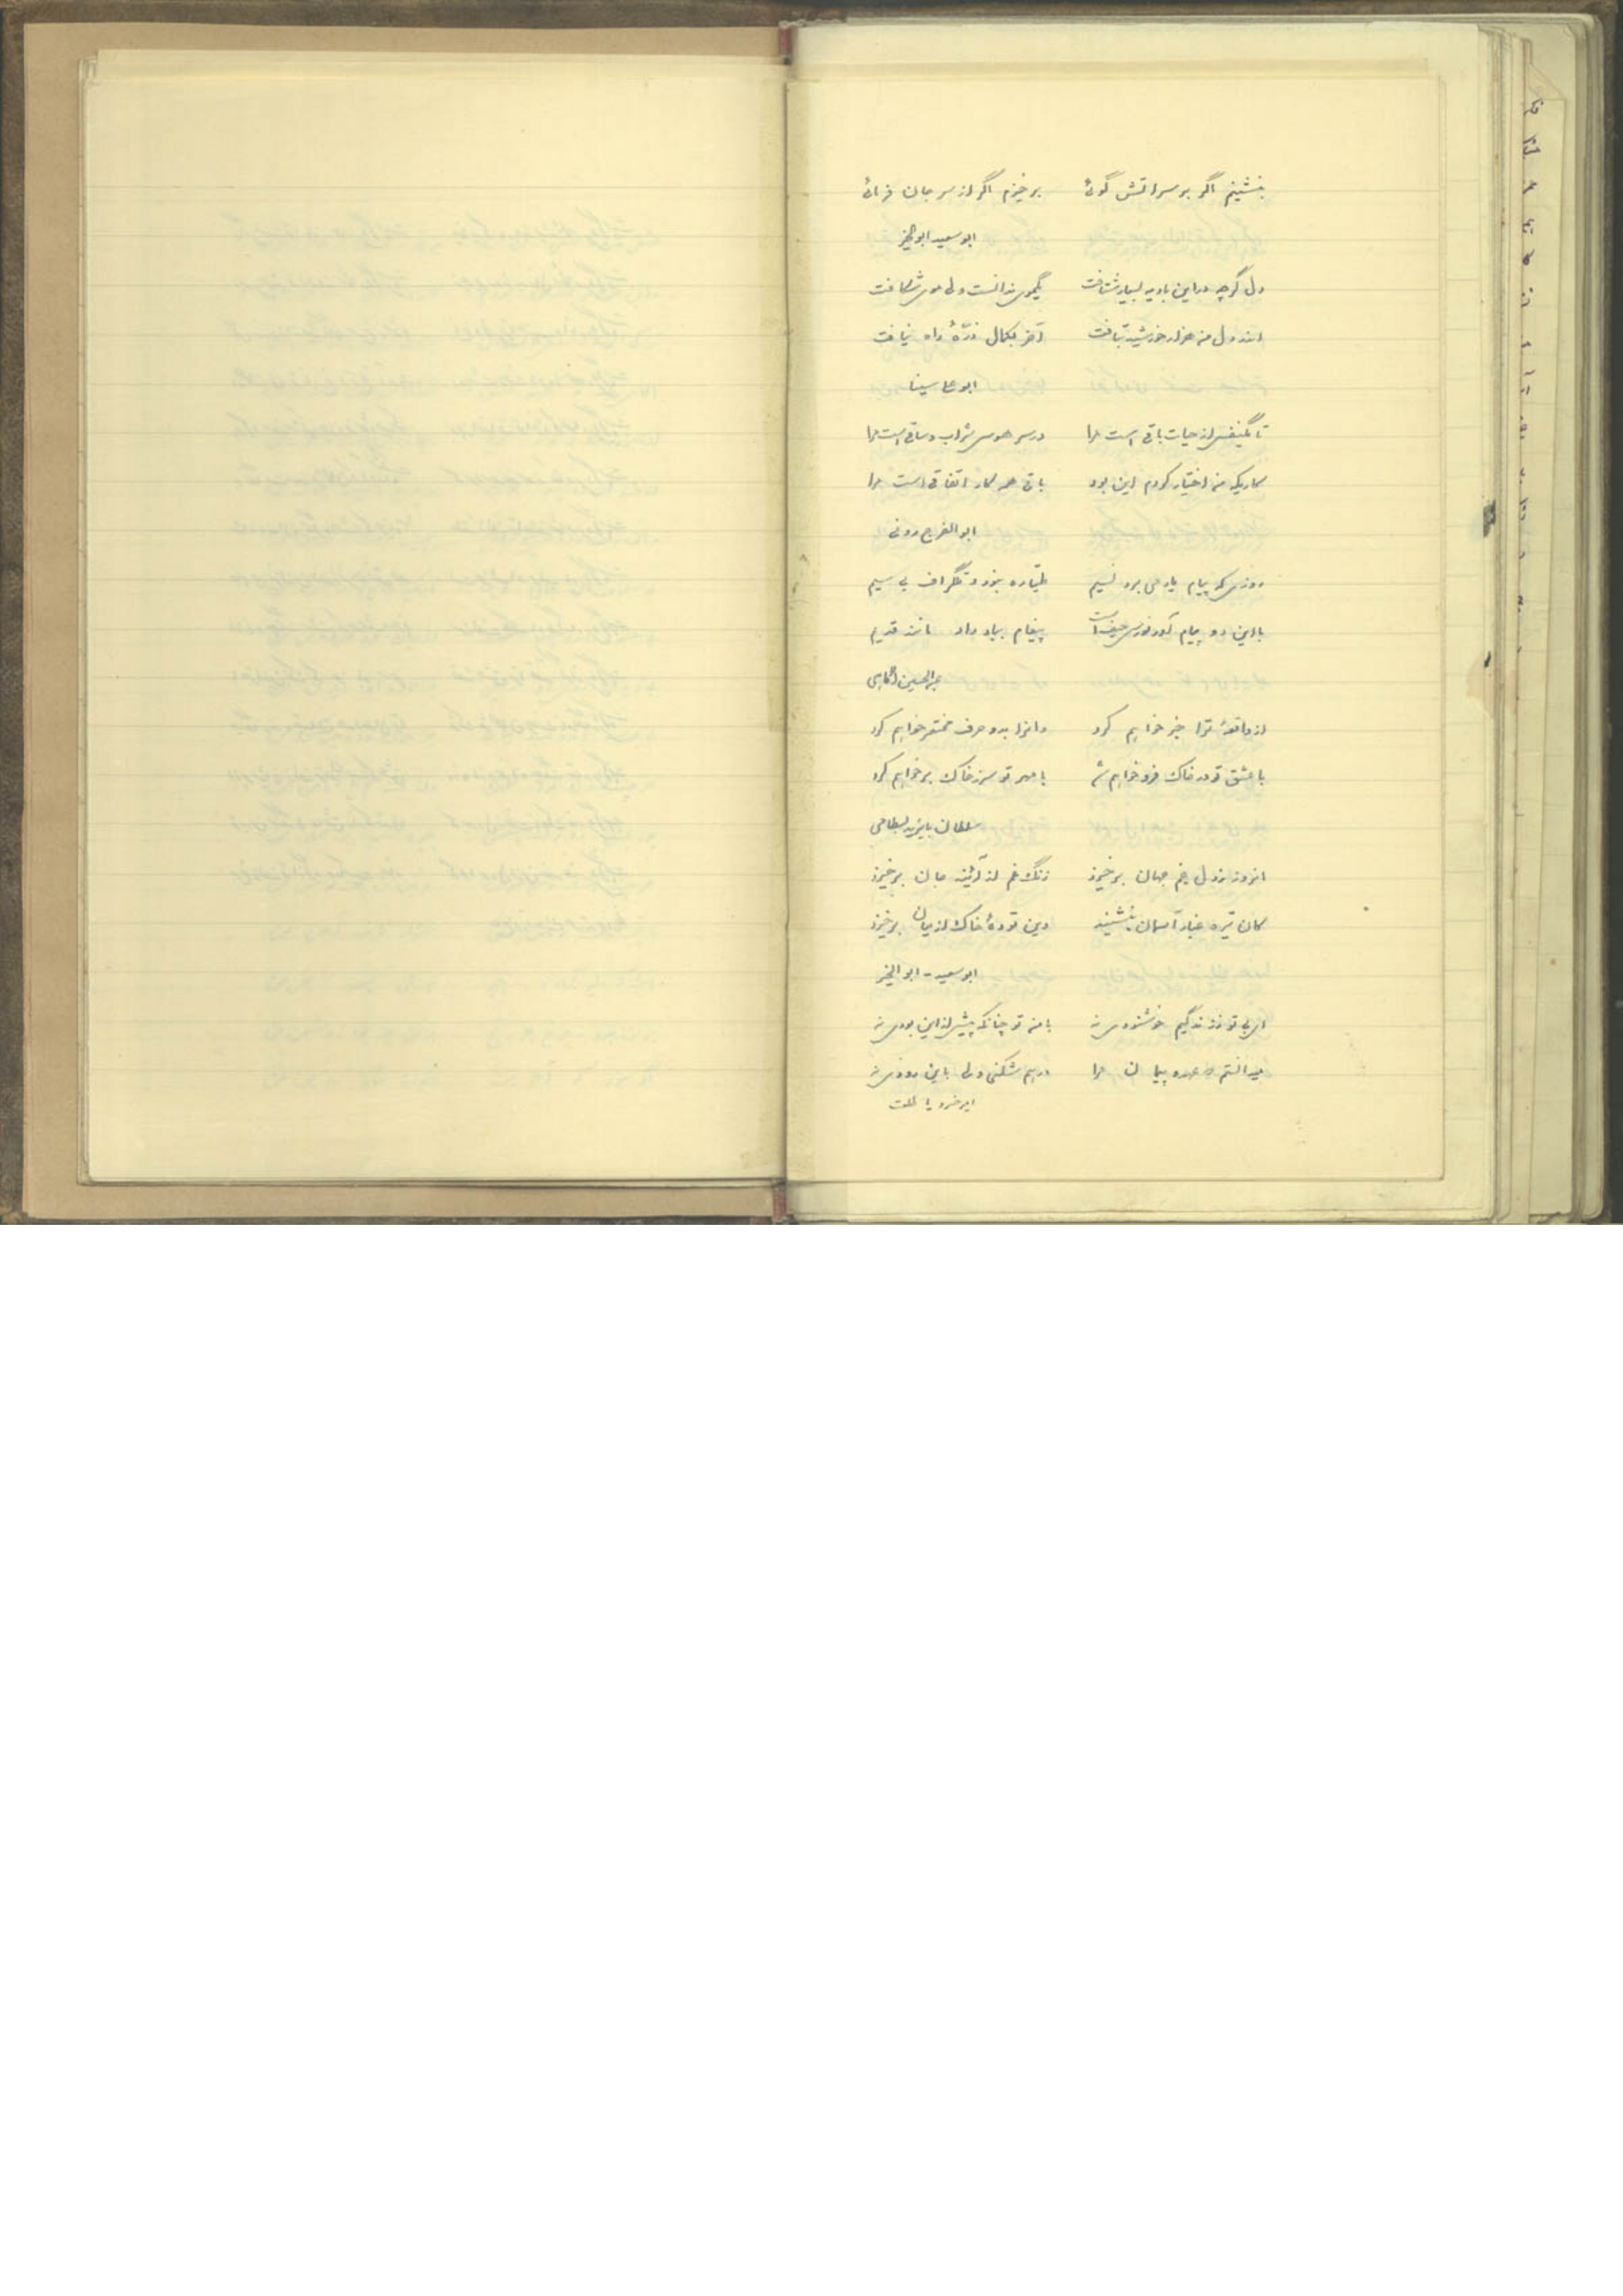 بنشینم اگر بر سر آتش گوئی برخیزم اگر از سر جان فرمائی
ابوسعید ابوالخیر
دل گرچه در این بادیه بسیار شتافت یکموی ندانست ولی موی شکافت
اندر دل من هزار خورشید بتافت آخر بکمال ذرّهٔ راه نیافت
ابوعلی سینا
تا یکنفس از حیات باقی است مرا در سر هوس شراب و ساقی است مرا
کاریکه من اختیار کردم این بود باقی همه کار اتفاقی است مرا
ابوالفرج رونی
روزی که پیام یار می برد نسیم طیّاره نبود و تلگراف بی سیم
با این دو پیام آور فوری حیف است پیغام بباد داد مانند قدیم
عبدالحسین
از واقعهٔ ترا خبر خواهم کرد وانرا بدو حرف مختصر خواهم کرد
با عشق تو در خاک فرو خواهم شد با مهر تو سر ز خاک بر خواهم کرد
سلطان بایزید بسطامی
امروز ز دل غم جهان برخیزد زنگ غم از آئینه جان برخیزد
کان تیره غبار آسمان بنشیند وین تودهٔ خاک از میان برخیزد
ابوسعید - ابوالخیر
ای بی تو ز زندگیم خوشنودی نه با من تو چنانکه پیش از این بودی نه
میدانستم که عهد و پیمان مرا درهم شکنی ولی باین زودی نه
امیر خسرو یا